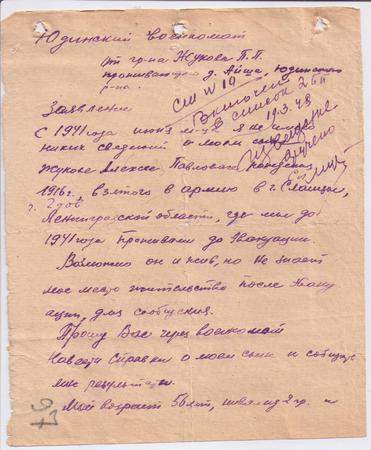 Юдинский военкомат
От гр-на Жукова П. П.
проживающего д. Айша, Юдинского
р-на.
Заявление
С 1941 года июня м-ца я не имею
никих сведений о моем сыне
Жукове Алексее Павловиче рождения
1916 г. взятого в армию в г. Сланцы,
Ленинградской области, где мы до
1941 года проживали до эвакуации.
Возможно он и жив, но не знает
мое место жительство после эваку
ации, для сообщения.
Прошу Вас через военкомат
навести справки о моем сыне и сообщить
мне результаты.
Мой возраст 56 лет, инвалид 2 гр. и
см N 19
Включен
в список 2
19.3.48
Извещение
вручено